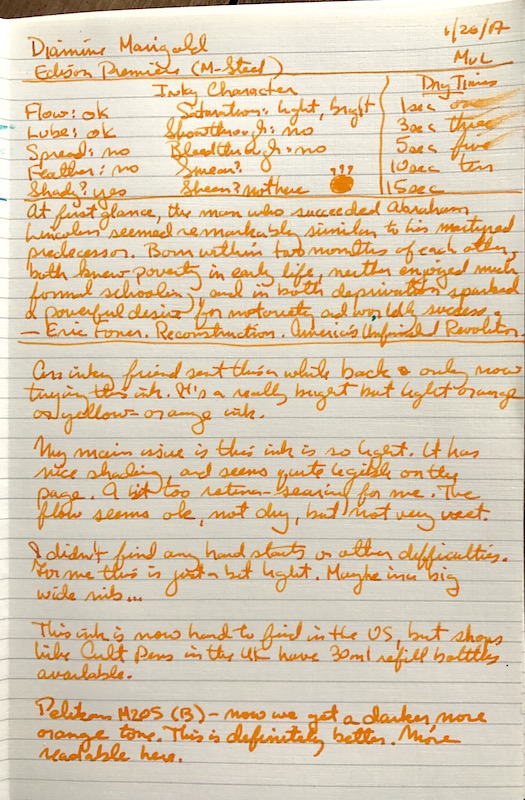 Diamine Marigold 1/26/17
Edison Premiere (M-Steel) MvL
Inky Character Dry Times
Flow: ok Saturation: light, bright 1 sec one
Lube: ok Showthrough: no 3 sec three
Spread: no Bleedthrough: no 5 sec five
Feather: no Smear? ??? 10 sec ten
Shade? yes Sheen? not here 15 sec
At first glance, the man who succeeded Abraham
Lincoln seemed remarkable similar to his martyred
predecessor. Born within two months of each other,
both knew poverty in early life, neither enjoyed much
formal schooling, and in both deprivation sparked
a powerful desire for notoriety and worldly success.
— Eric Foner. Reconstruction. America's Unfinished Revolution
An inky friend sent this a while back & only now
trying this ink. It's a really bright but light orange
or yellow-orange ink.
My main issue is this ink is so light. It has
nice shading, and seems quite legible on the
page. A bit too retina-searing for me. The
flow seems ok, not dry, but not very wet.
I didn't find any hard starts or other difficulties.
For me this is just a bit light. Maybe in a big
wide nib...
This ink is now hard to find in the US, but shops
like Cult Pens in the UK have 30ml refill bottles
available.
Pelikan M205 (B) - now we get a darker, more
orange tone. This is definitely better. More
readable here.